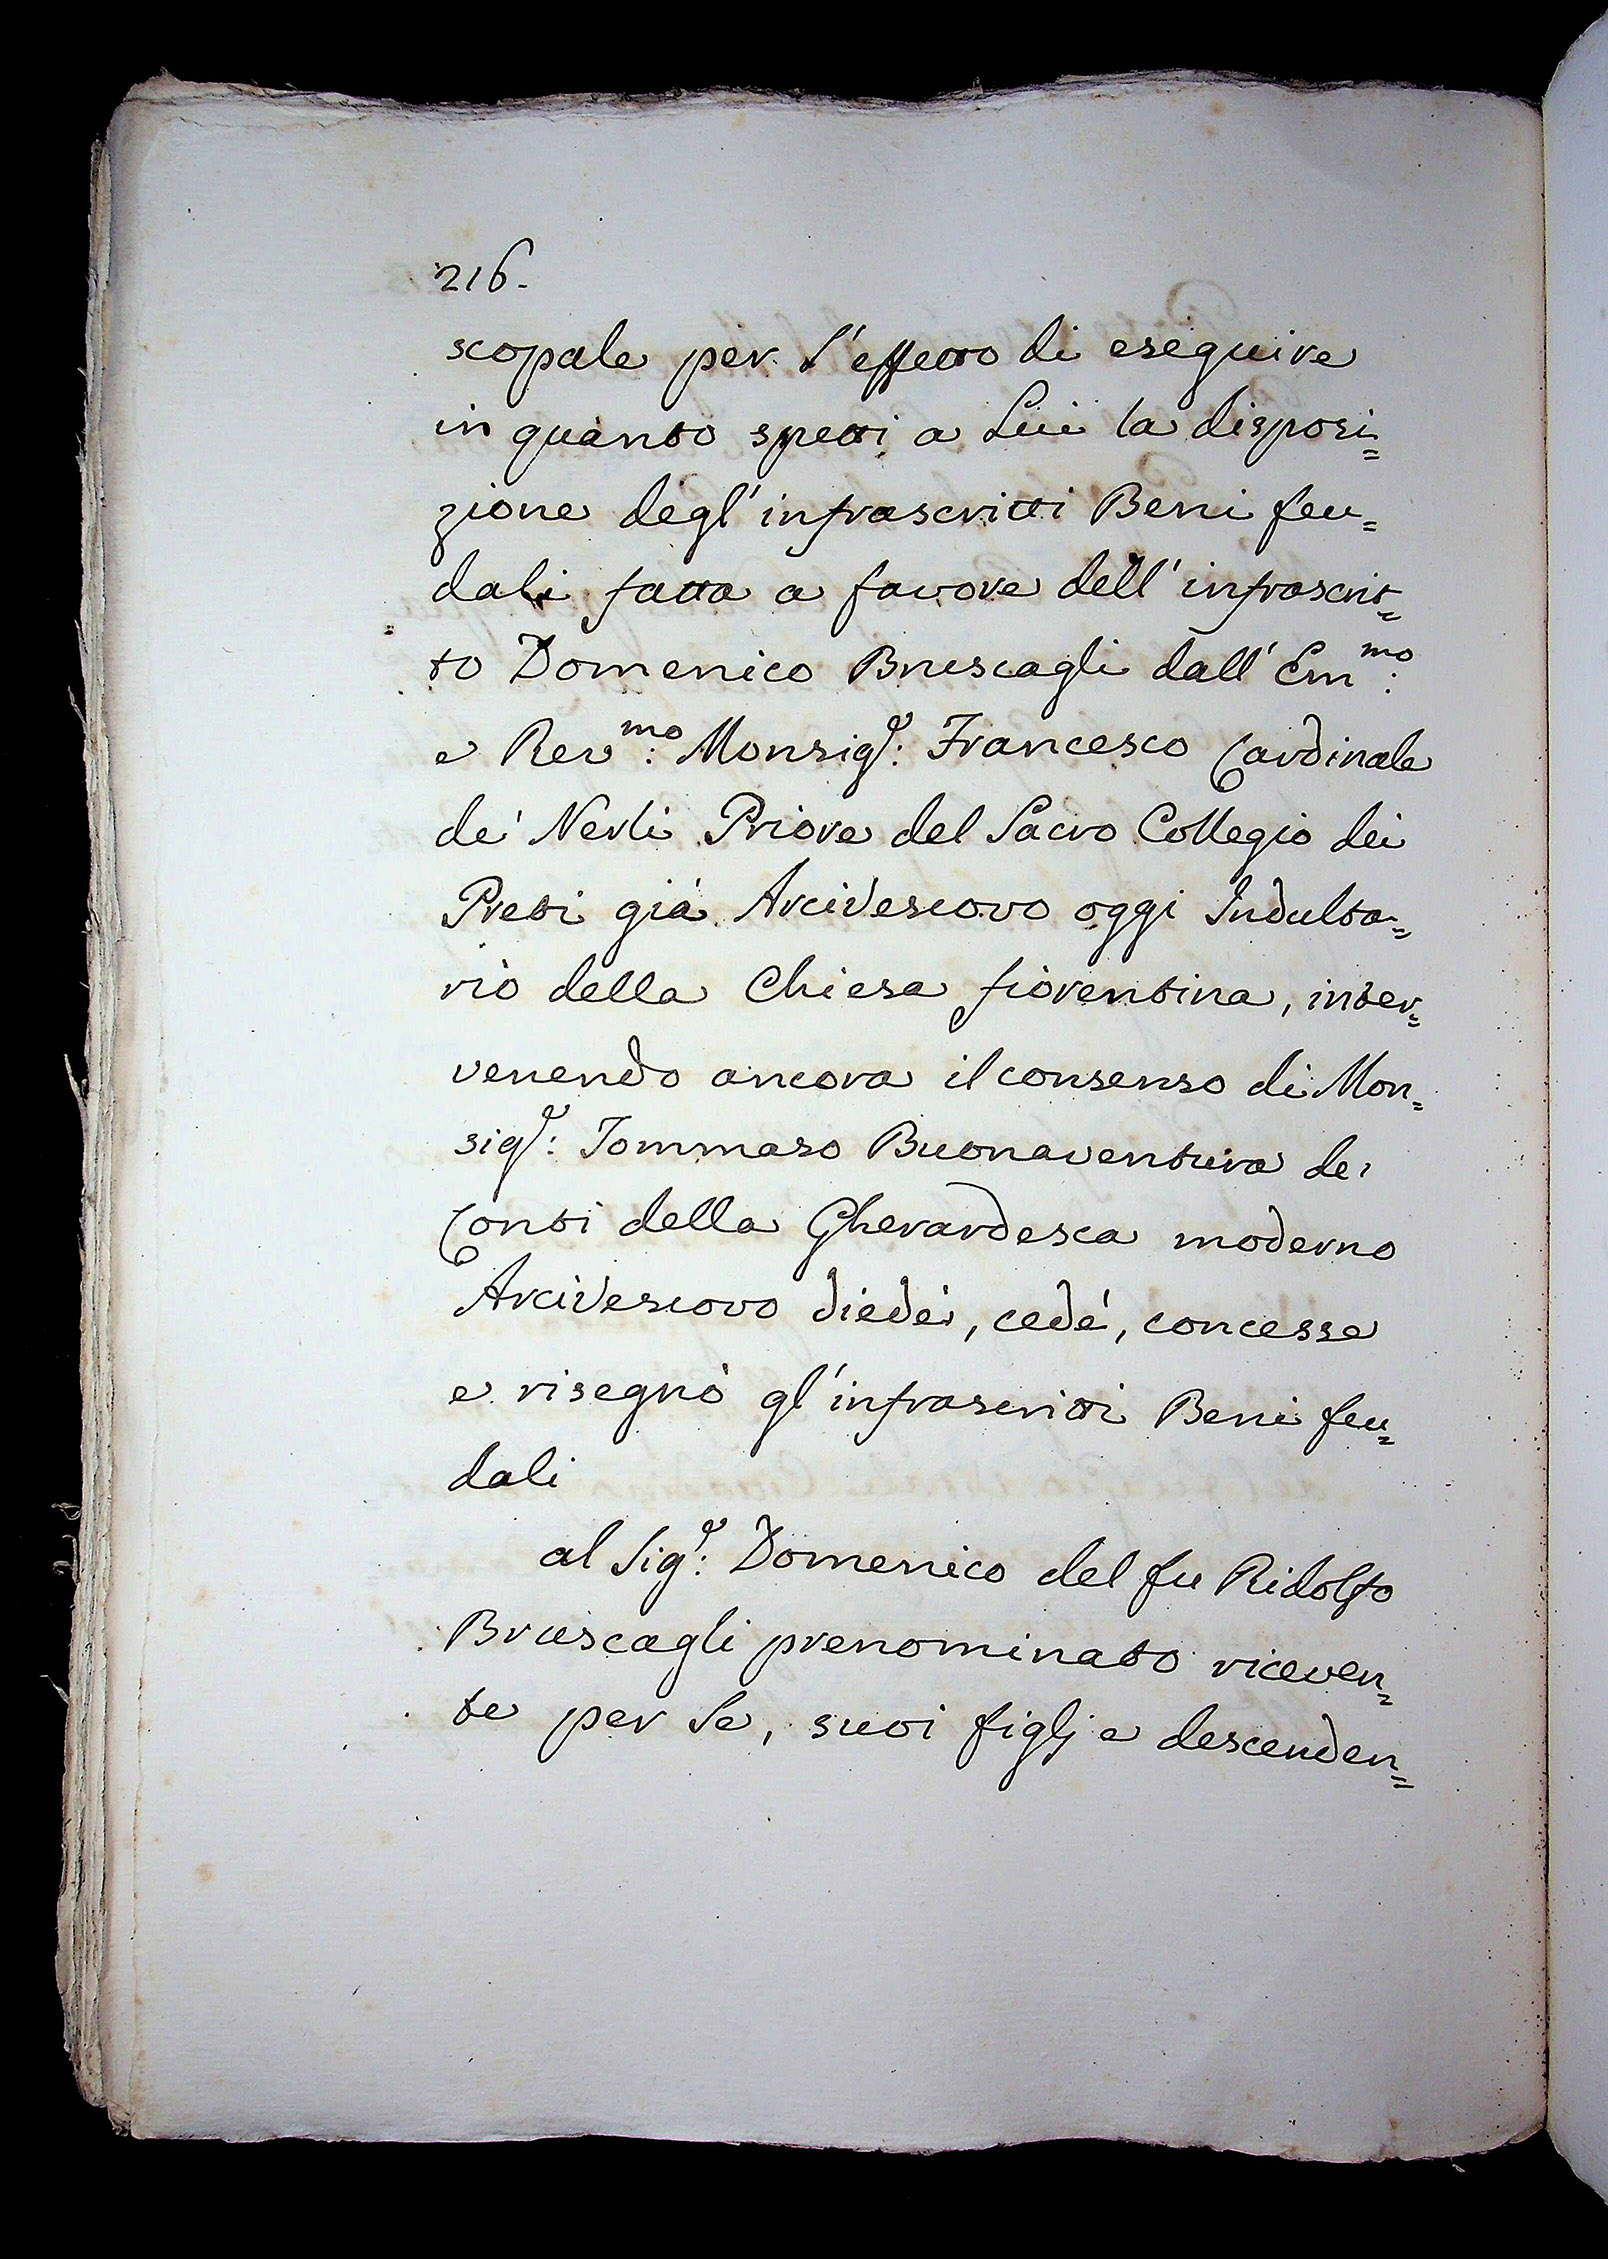 216.
scopale per l'effetto di eseguire
in quanto spetti a Lui la disposi=
zione degl'infrascritti Beni feu=
dali fatta a favore dell'infrascrit=
to Domenico Bruscagli dall'Em.mo:
e Rev.mo: Monsig.e: Francesco Cardinale
de' Nerli Priore del Sacro Collegio dei
Preti già Arcivescovo oggi Indulta=
rio della Chiesa fiorentina, inter=
venendo ancora il consenso di Mon=
sig.e: Tommaso Buonaventura dei
Conti della Gherardesca moderno
Arcivescovo diedè, cedè, concesse
e risegnò gl'infrascritti Beni feu=
dali
al Sig.e: Domenico del fu Ridolfo
Bruscagli prenominato riceven=
te per Se, suoi figlj e descenden=